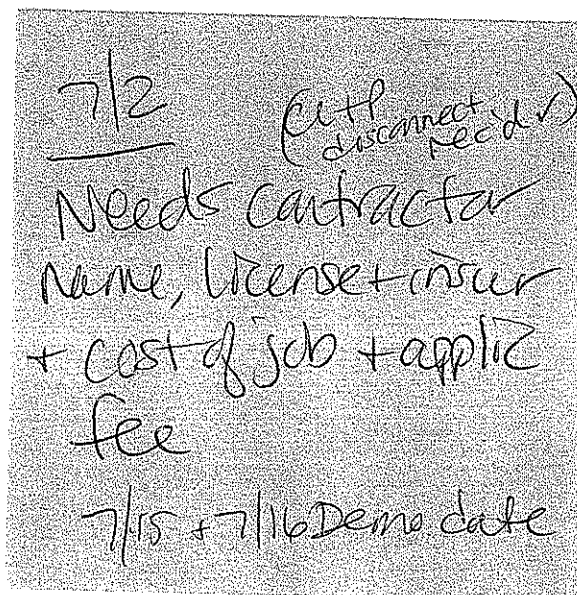 7/2
(cut+P
disconnect
rec'd ✓)
Needs contractor
Name, license + insur
+ cost of job + applic
fee
7/15 + 7/16 Demo date